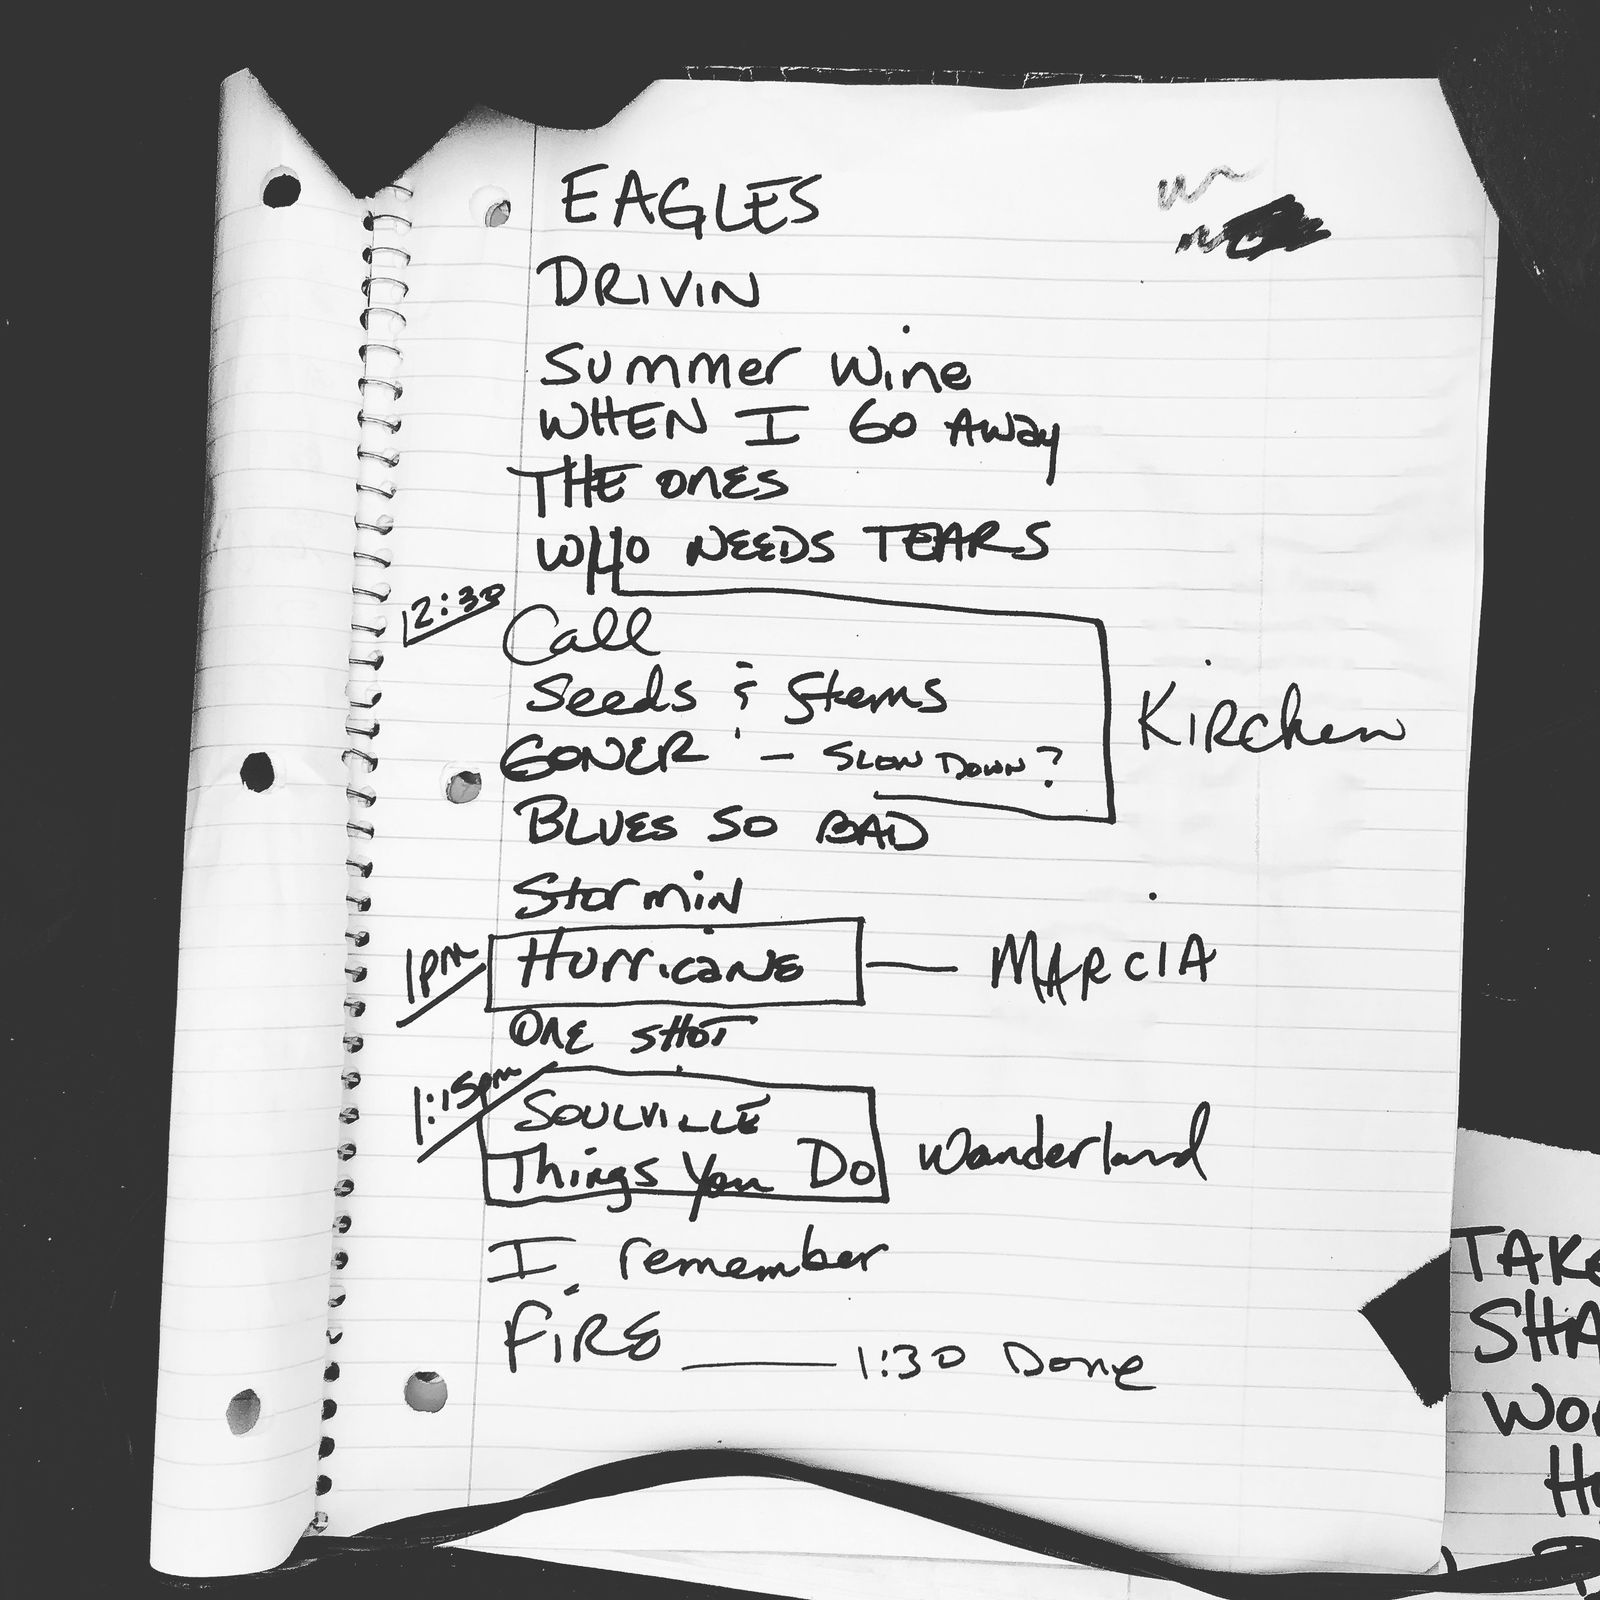 EAGLES
DRIVIN
Summer Wine
WHEN I GO AWAY
THE ONES
WHO NEEDS TEARS
12:30
Call
Seeds & Stems
Kirchen
GONER - SLOW DOWN?
BLUES SO BAD
Stormin
1pm
HurricaNE
MARCIA
ONE SHOT
1:15pm
SOULVILLE
Things You Do
Wonderland
I remember
FIRE 1:30 Done
TAKE
SHA
WO
H